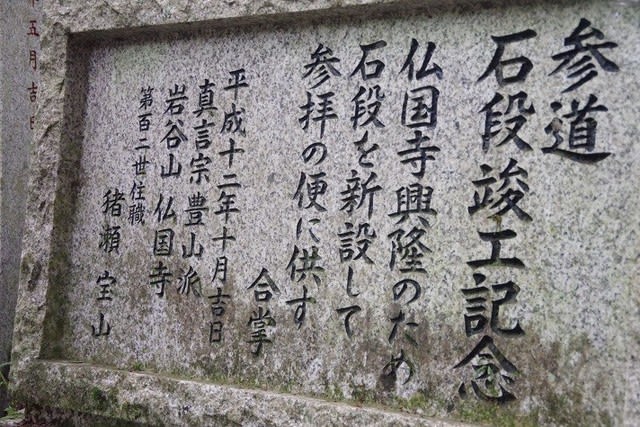 参道
石段竣工記念
仏国寺興隆のため
石段を新設して
参拝の便に供す
合掌
平成十二年十月吉日
真言宗豊山派
岩谷山 仏国寺
第百二世住職
猪瀬 宝山
年五月吉日